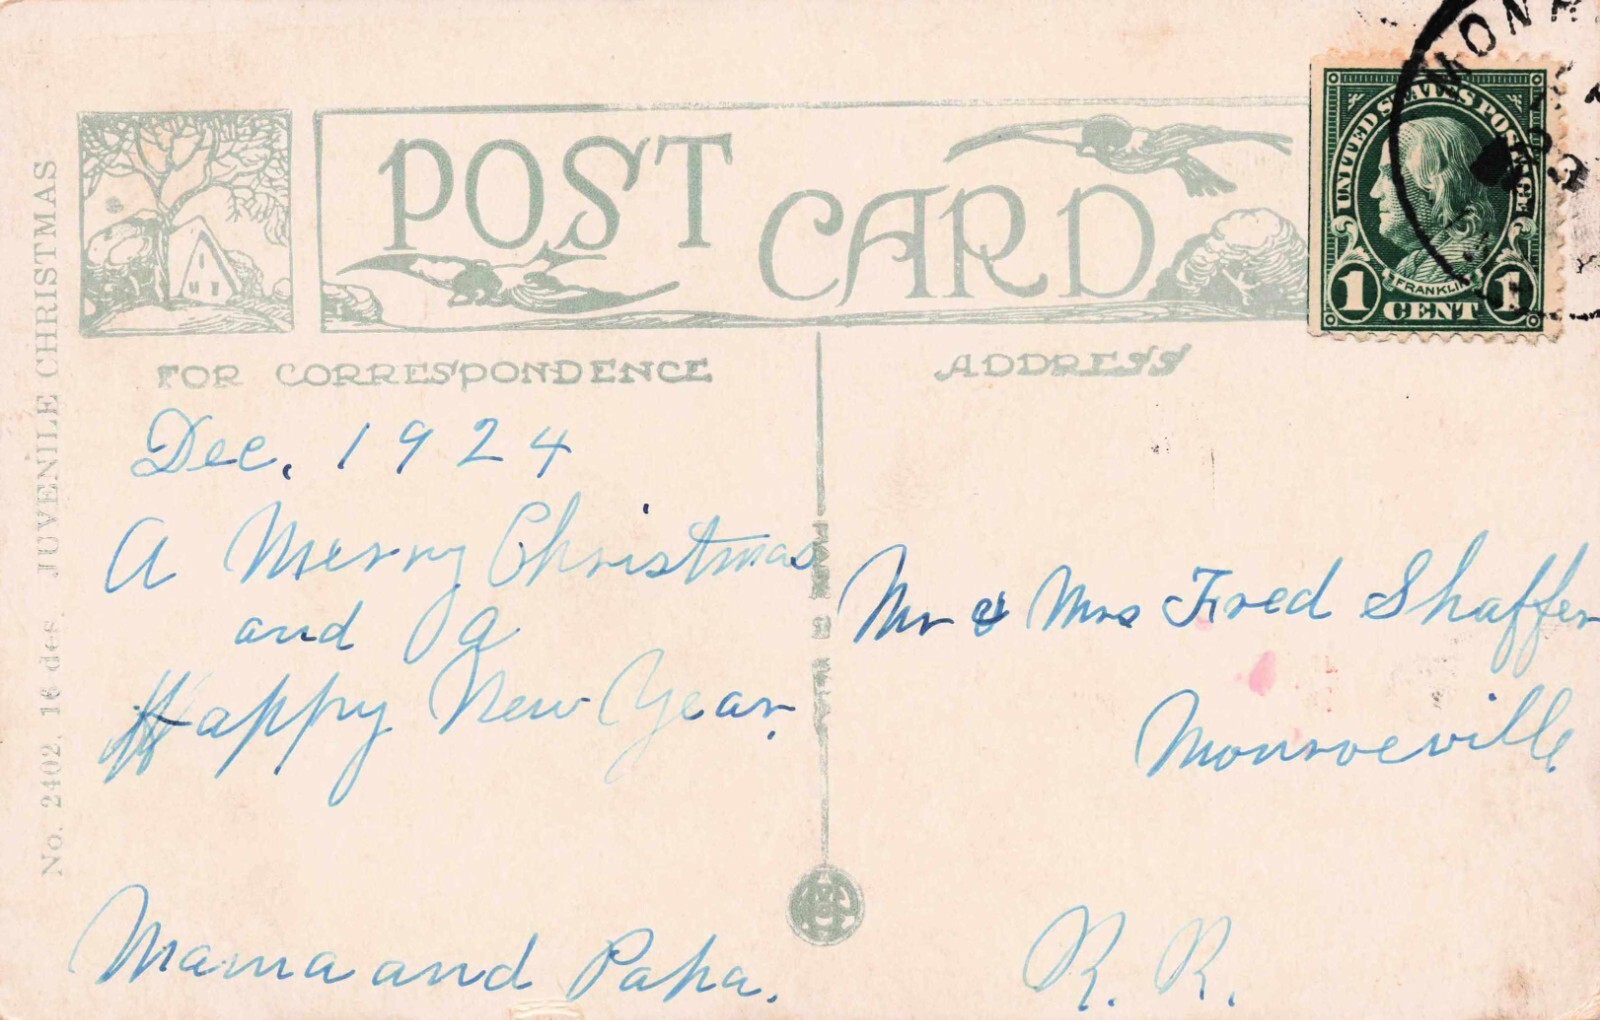 POST CARD
FOR CORRESPONDENCE
ADDRESS
No. 2402. 16 des. JUVENILE CHRISTMAS
UNITED STATES POSTAGE
FRANKLIN
1 CENT 1
Dec. 1924
A Merry Christmas
and a
Happy New Year.
Mama and Papa.
Mr & Mrs Fred Shaffer
Monroeville
R. R.